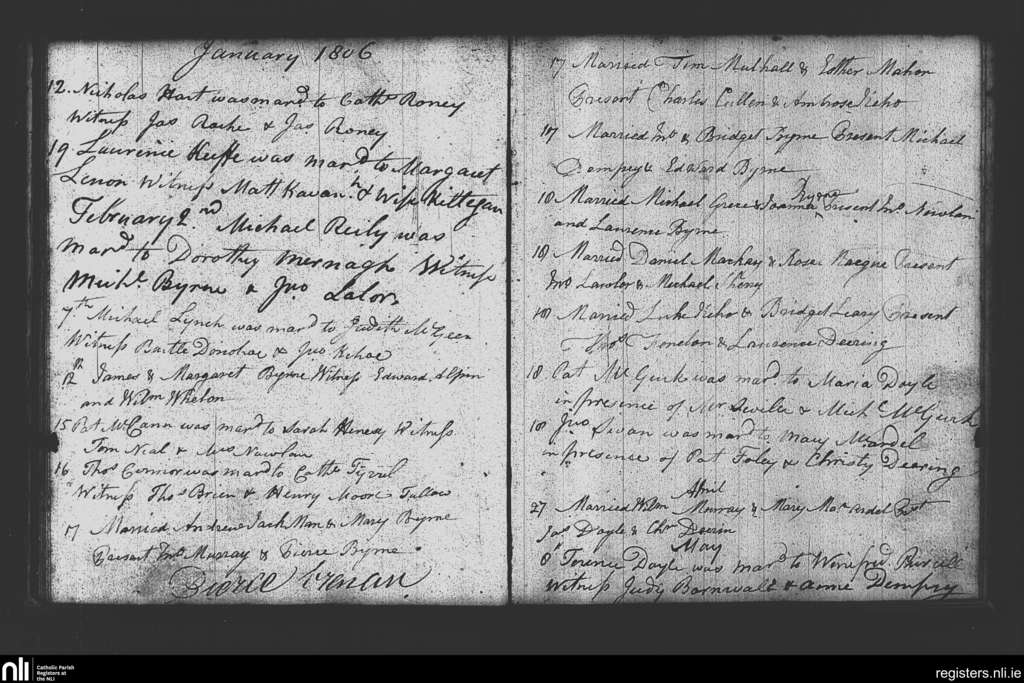 January 1806
12. Nicholas Hart was mard to Cathe Roney
Witness Jas Roche & Jas Roney
19 Laurence Keffe was mard to Margaret
Lenon Witness Matt Kavanh & Wife Kitty Egan
February 2nd Michael Reily was
Mard to Dorothy Mernagh Witness
Michl Byrne & Jno Lalor
7th Michael Lynch was mard to Judith McGeen
Witness Bartle Donohoe & Jno Kehoe
12th James & Margaret Byrne Witness Edward
and Willm Whelan
15 Pat McCann was mard to Sarah Henesy Witness
Tom Nial & Mrs Nowlan
16 Thos Connor was mard to Cathe Tyrrel
Witness Thos Brien & Henry Moore Tullow
17 Married Andrew Jackman & Mary Byrne
Presant Jno Murray & Pierce Byrne
Pierce
17 Married Tim Mulhall & Esther Mahon
Presant Charles Cullen & Ambrose Keho
17 Married Jno & Bridget Byrne Presant Michael
Dempsy & Edward Byrne
18 Married Michael Grace & Joanna Byrne Presant Jno Nowlan
and Laurence Byrne
18 Married Daniel Mackay & Rose Presant
Jno Lawlor & Michael
18 Married Luke Kehor & Bridget Leary Presant
Thos Fenelon & Laurence Deering
18. Pat McGurk was mard to Maria Doyle
in presence of Mr & Michl McGurk
18 Jno Swan was mard to Mary Mardel
in presence of Pat Foley & Christy Deering
April
27 Married Willm Murray & Mary
Jas Doyle & Chr Deerin
May
8 Terence Doyle was mard to Winefred Purcill
Witness Judy Barnwall & Anne Dempsy
nli
Catholic Parish
Registers at
the NLI
registers.nli.ie